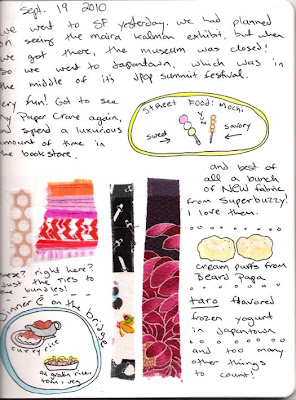 Sept. 19 2010
we went to SF yesterday. we had planned
on seeing the maira kalman exhibit, but when
we got there, the museum was closed!
so we went to Japantown, which was in
the middle of its Jpop summit festival.
very fun! Got to see
my Paper Crane again,
and spend a luxurious
amount of time in
the bookstore.
Street Food: Mochi
sweet
yum
savory
and best of
all a bunch
of NEW fabric
from Superbuzzy!
I love them.
cream puffs from
Beard Papa
these? right here?
Just the ties to
the bundles!
dinner @ on the bridge
curry rice
au gratin rice,
tofu & veg
taro flavored
frozen yogurt
in Japantown
and too many
other things
to count!